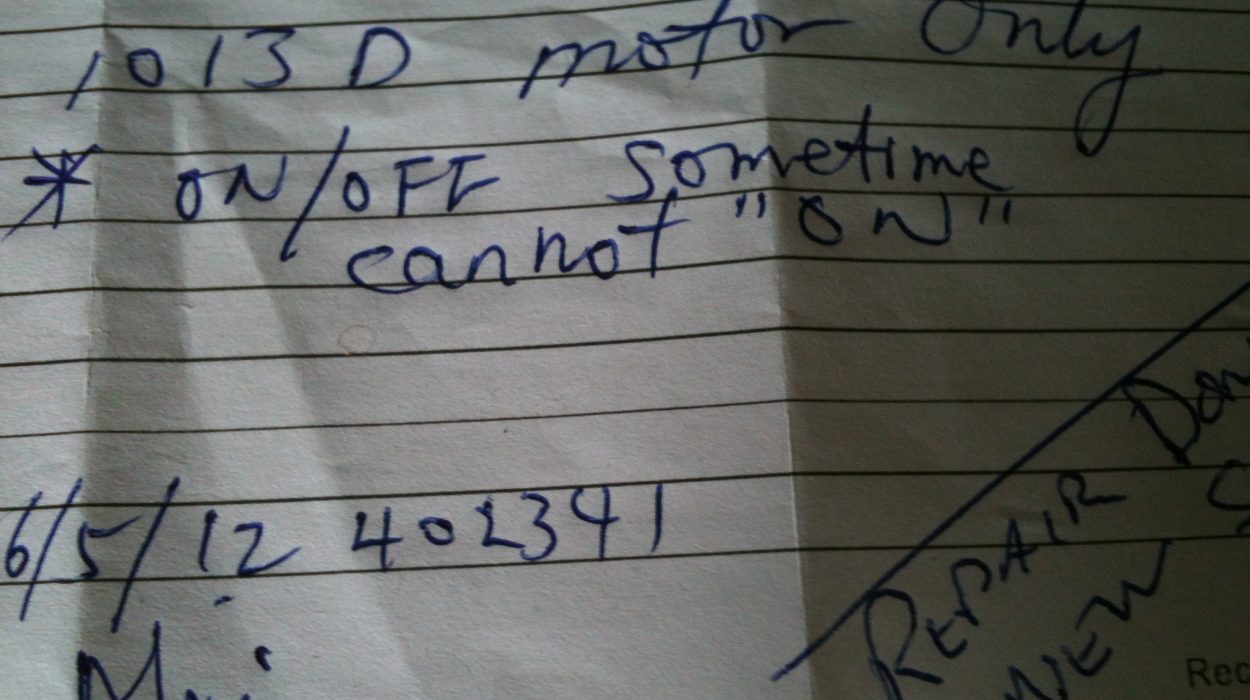 1013 D motor Only
* ON/OFF Sometime
cannot "ON"
6/5/12 402391
REPAIR
NEW
Rec